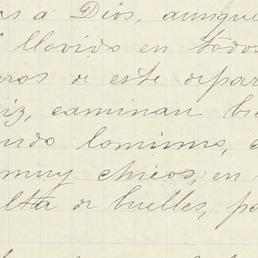 as á Dios, aunque
llovido en todos
eros de este depar
iz, caminan bi
lomimos,
muy chicos, en
alta de buelles, po